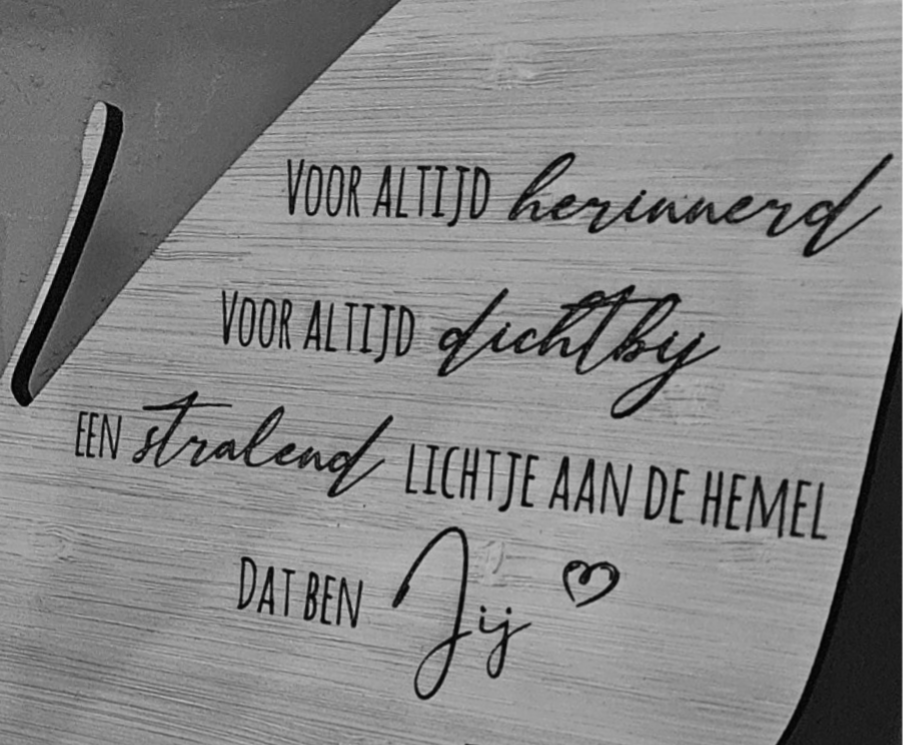 VOOR ALTIJD herinnerd
VOOR ALTIJD dichtbij
EEN stralend LICHTJE AAN DE HEMEL
DAT BEN Jij